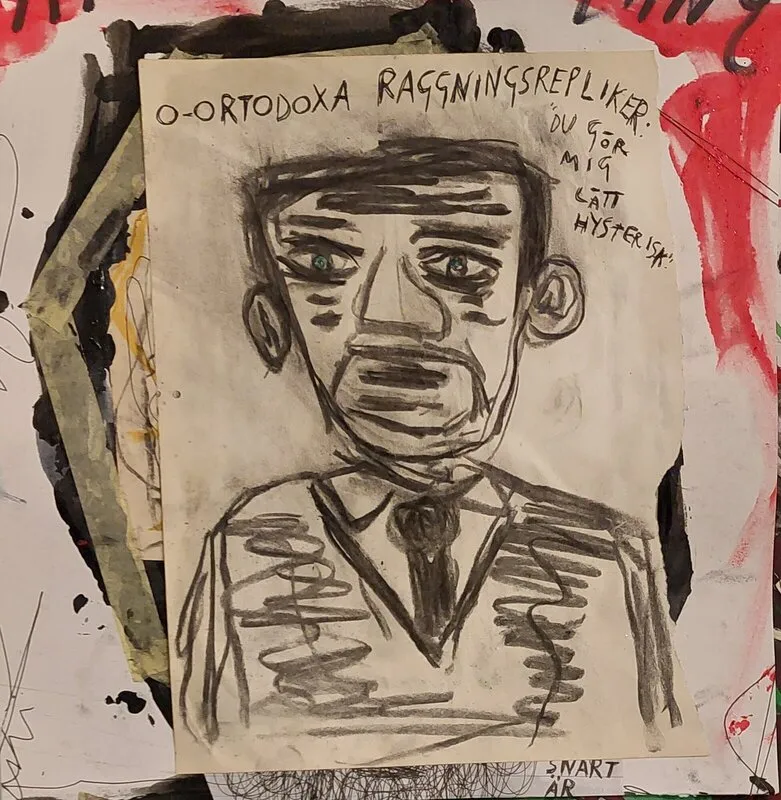 O-ORTODOXA RAGGNINGSREPLIKER.
"DU GÖR
MIG
LÄTT
HYSTERISK".
SNART
ÄR